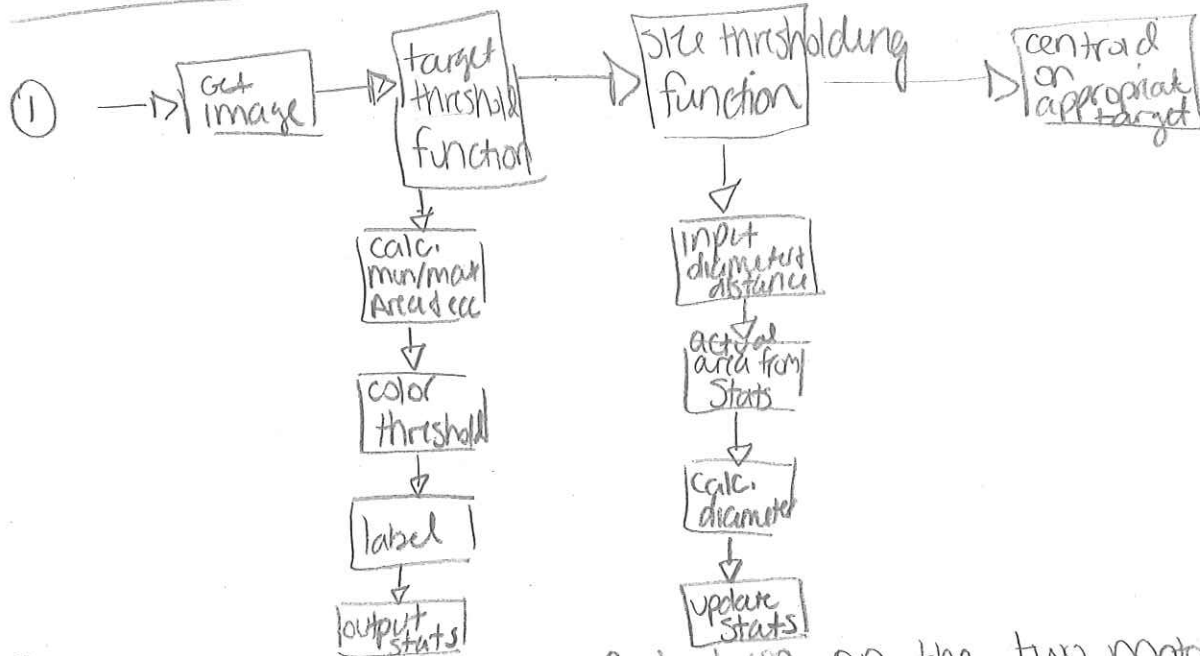 ①
Get
image
target
threshold
function
size thresholding
function
centroid
on
appropriate
target
calc.
min/max
Area & ecc
color
threshold
label
output
stats
input
diameter &
distance
actual
area from
Stats
calc.
diameter
update
stats
on the two mot